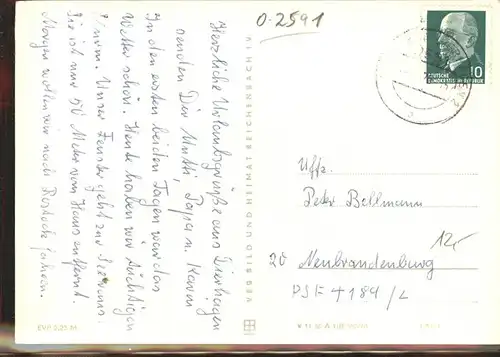 0-2591
Herzliche Urlaubsgrüße aus Dierhagen
senden Dir Mutti, Papa u. Karin
In den ersten beiden Tagen war das
Wetter schön. Heute haben wir tüchtigen
Sturm. Unser Fenster geht zur See raus.
Sie ist nur 50 Meter vom Haus entfernt.
Morgen wollen wir nach Rostock fahren.
EVP 0,25 M
VEB BILD UND HEIMAT REICHENBACH I.V.
DEUTSCHE
DEMOKRATISCHE REPUBLIK
10
Uffz.
Peter Bellmann
12,-
20 Neubrandenburg
PSF 4184/L